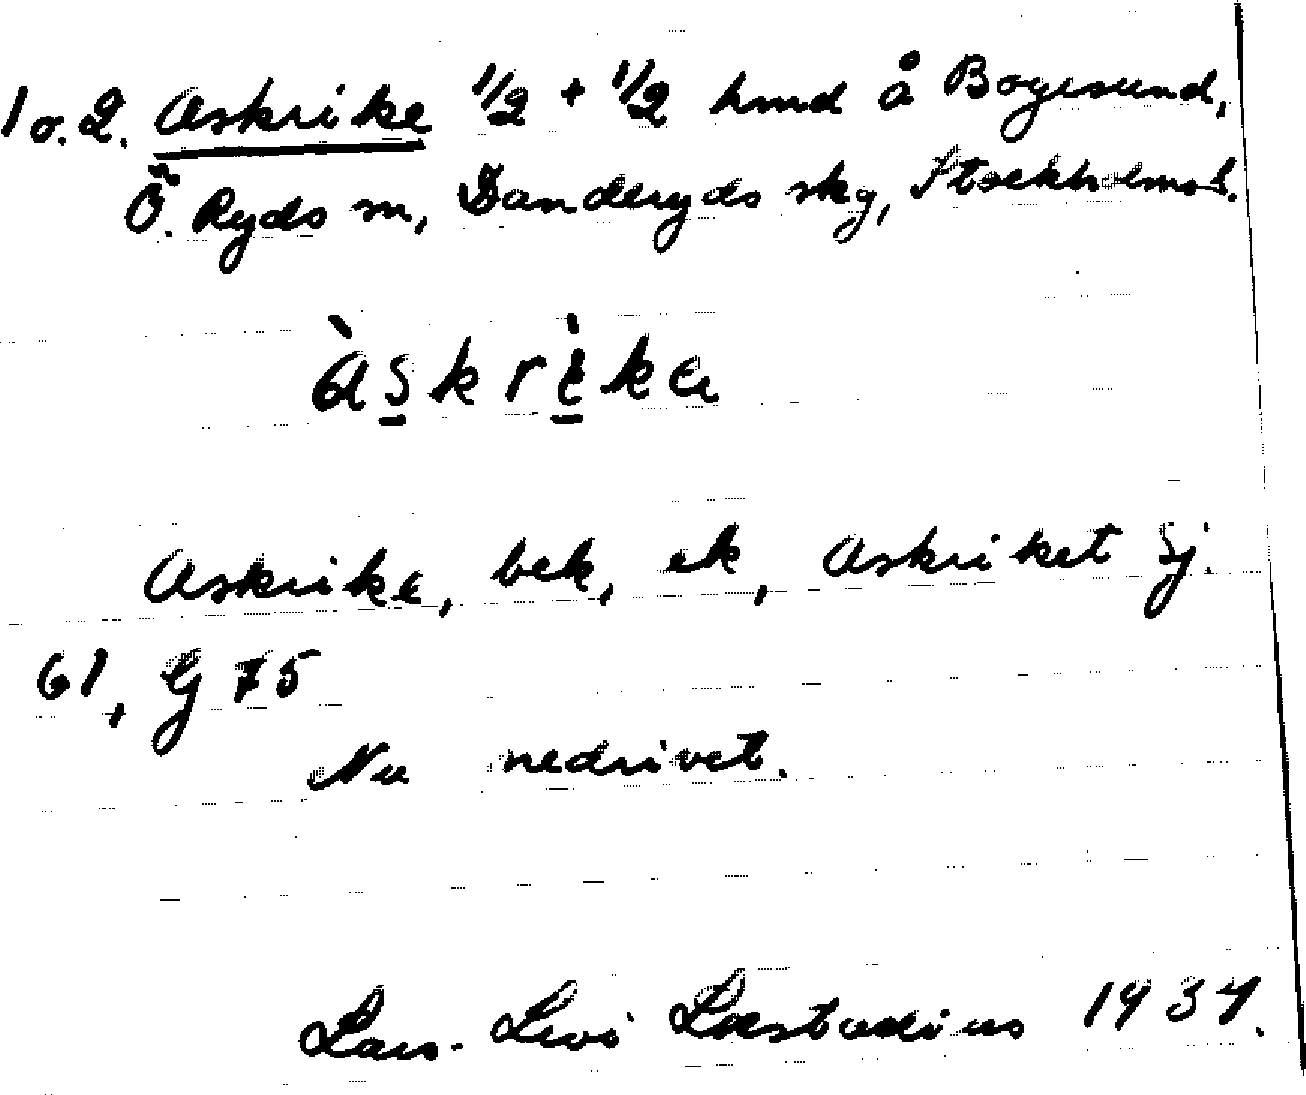 1 o. 2. Askrike 1/2 + 1/2 hmd å Bogesund,
Ö. Ryds sn, Danderyds skg, Stockholms l.
àskrìka
Askrike, bek, ek, Askriket Sj.
61, G 75
Nu nedrivet.
Lars-Levi Læstadius 1937.